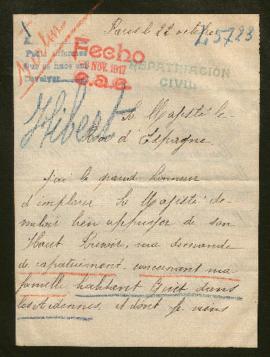 Paris le 22 octobre
L 5723
Fecho
NOV. 1917
e.a.e.
REPATRIACIÓN
CIVIL
Hibert
Sa Majesté le
Roi d'Espagne
J'ai le grand honneur
d'implorer Sa Majesté de
vouloir bien appuyer de son
Haut ma demande
de rapatriement concernant ma
famille habitant Givet dans
les Ardennes, et dont je vous